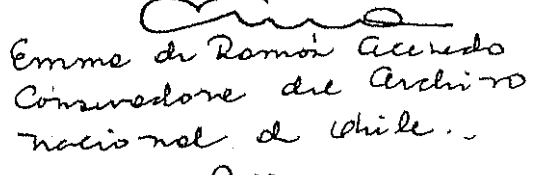 Emma de Ramón Acevedo
Conservadora del Archivo
nacional de Chile.-